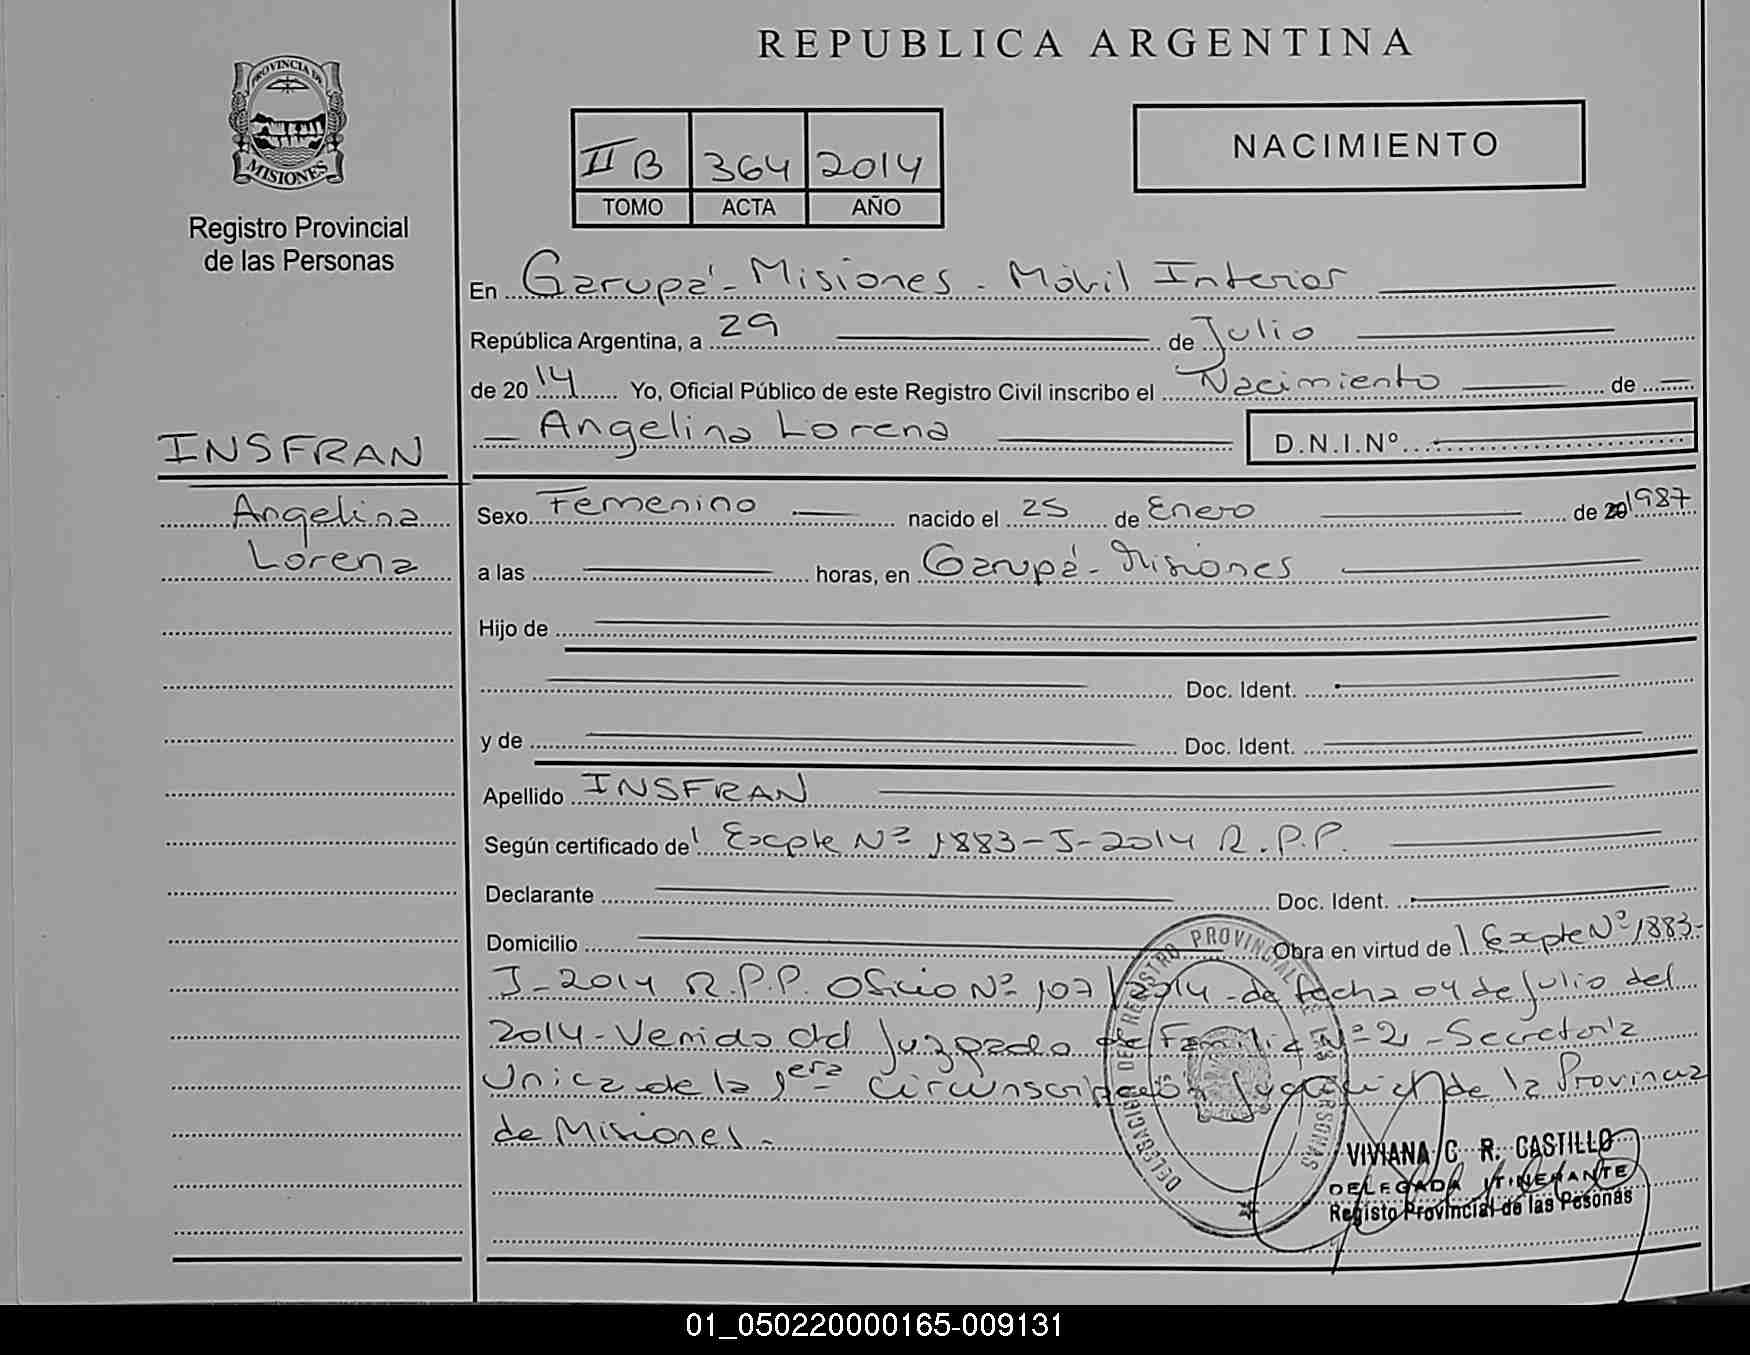 REPUBLICA ARGENTINA
PROVINCIA DE
MISIONES
Registro Provincial
de las Personas
II B 364 2014
TOMO ACTA AÑO
NACIMIENTO
En Garupá - Misiones - Móvil Interior
República Argentina, a 29 de Julio
de 2014 Yo, Oficial Público de este Registro Civil inscribo el Nacimiento de
Angelina Lorena D.N.I.Nº
INSFRAN
Angelina
Lorena
Sexo Femenino nacido el 25 de Enero de 20 1987
a las horas, en Garupá - Misiones
Hijo de
Doc. Ident.
y de Doc. Ident.
Apellido INSFRAN
Según certificado de Expte Nº 1883-I-2014 R.P.P.
Declarante Doc. Ident.
Domicilio Obra en virtud de Expte Nº 1883-
I-2014 R.P.P. Oficio Nº 107/2014 - de fecha 04 de Julio del
2014 - Venido del Juzgado de Familia Nº 2 - Secretaría
Unica de la 1era Circunscripción Judicial de la Provincia
de Misiones -
DELEGACION DEL REGISTRO PROVINCIAL DE LAS PERSONAS
VIVIANA C. R. CASTILLO
DELEGADA ITINERANTE
Registo Provincial de las Pesonas
01_050220000165-009131